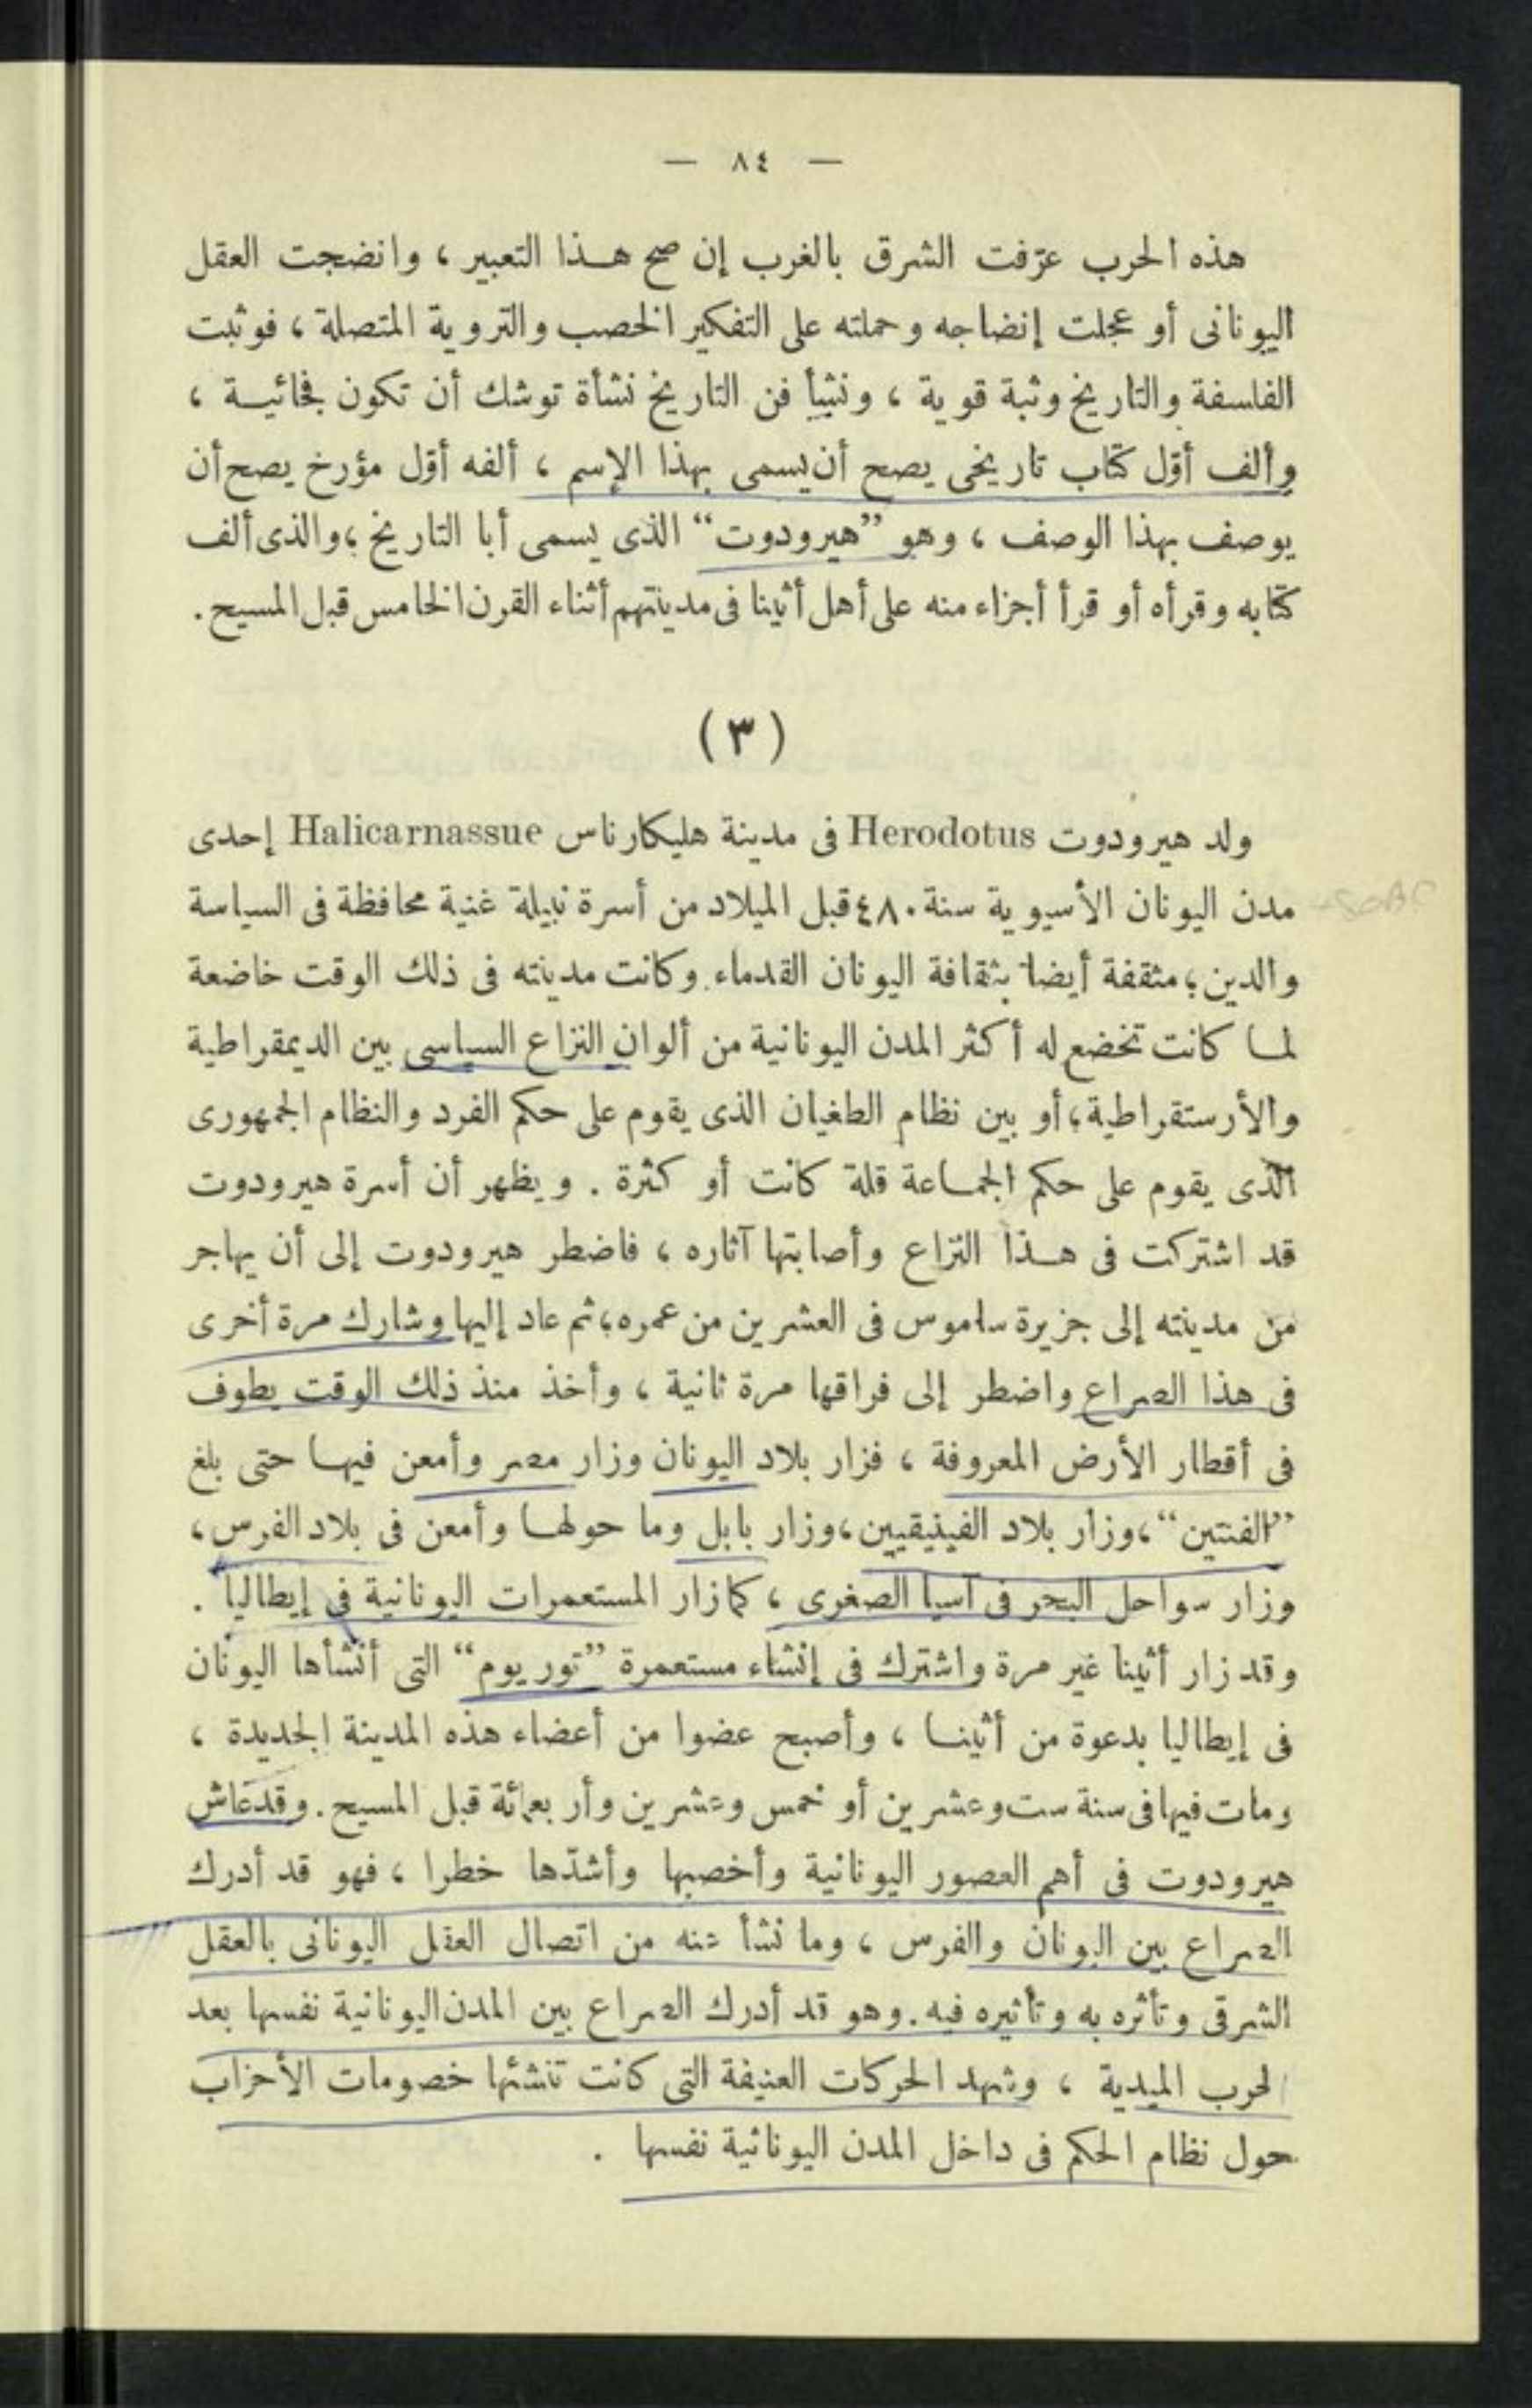 — ٨٤ —
هذه الحرب عرّفت الشرق بالغرب إن صح هذا التعبير ، وانضجت العقل
اليونانى أو عجلت إنضاجه وحملته على التفكير الخصب والتروية المتصلة ، فوثبت
الفلسفة والتاريخ وثبة قوية ، ونشأ فن التاريخ نشأة توشك أن تكون فجائية ،
وألف أوّل كتاب تاريخى يصح أن يسمى بهذا الإسم ، ألفه أوّل مؤرخ يصح أن
يوصف بهذا الوصف ، وهو "هيرودوت" الذى يسمى أبا التاريخ ؛ والذى ألف
كتابه وقرأه أو قرأ أجزاء منه على أهل أثينا فى مدينتهم أثناء القرن الخامس قبل المسيح .
( ٣ )
ولد هيرودوت Herodotus فى مدينة هليكارناس Halicarnassue إحدى
مدن اليونان الأسيوية سنة ٤٨٠ قبل الميلاد من أسرة نبيلة غنية محافظة فى السياسة
والدين ؛ مثقفة أيضا بثقافة اليونان القدماء . وكانت مدينته فى ذلك الوقت خاضعة
لما كانت تخضع له أكثر المدن اليونانية من ألوان النزاع السياسى بين الديمقراطية
والأرستقراطية ؛ أو بين نظام الطغيان الذى يقوم على حكم الفرد والنظام الجمهورى
الذى يقوم على حكم الجماعة قلة كانت أو كثرة . ويظهر أن أسرة هيرودوت
قد اشتركت فى هذا النزاع وأصابتها آثاره ، فاضطر هيرودوت إلى أن يهاجر
من مدينته إلى جزيرة ساموس فى العشرين من عمره ؛ ثم عاد إليها وشارك مرة أخرى
فى هذا الصراع واضطر إلى فراقها مرة ثانية ، وأخذ منذ ذلك الوقت يطوف
فى أقطار الأرض المعروفة ، فزار بلاد اليونان وزار مصر وأمعن فيها حتى بلغ
"الفنتين" ، وزار بلاد الفينيقيين ، وزار بابل وما حولها وأمعن فى بلاد الفرس ،
وزار سواحل البحر فى آسيا الصغرى ، كما زار المستعمرات اليونانية فى إيطاليا .
وقد زار أثينا غير مرة واشترك فى إنشاء مستعمرة "توريوم" التى أنشأها اليونان
فى إيطاليا بدعوة من أثينا ، وأصبح عضوا من أعضاء هذه المدينة الجديدة ،
ومات فيها فى سنة ست وعشرين أو خمس وعشرين وأربعمائة قبل المسيح . وقد عاش
هيرودوت فى أهم العصور اليونانية وأخصبها وأشدّها خطرا ، فهو قد أدرك
الصراع بين اليونان والفرس ، وما نشأ عنه من اتصال العقل اليونانى بالعقل
الشرقى وتأثره به وتأثيره فيه . وهو قد أدرك الصراع بين المدن اليونانية نفسها بعد
لحرب الميدية ، وشهد الحركات العنيفة التى كانت تنشئها خصومات الأحزاب
حول نظام الحكم فى داخل المدن اليونانية نفسها .